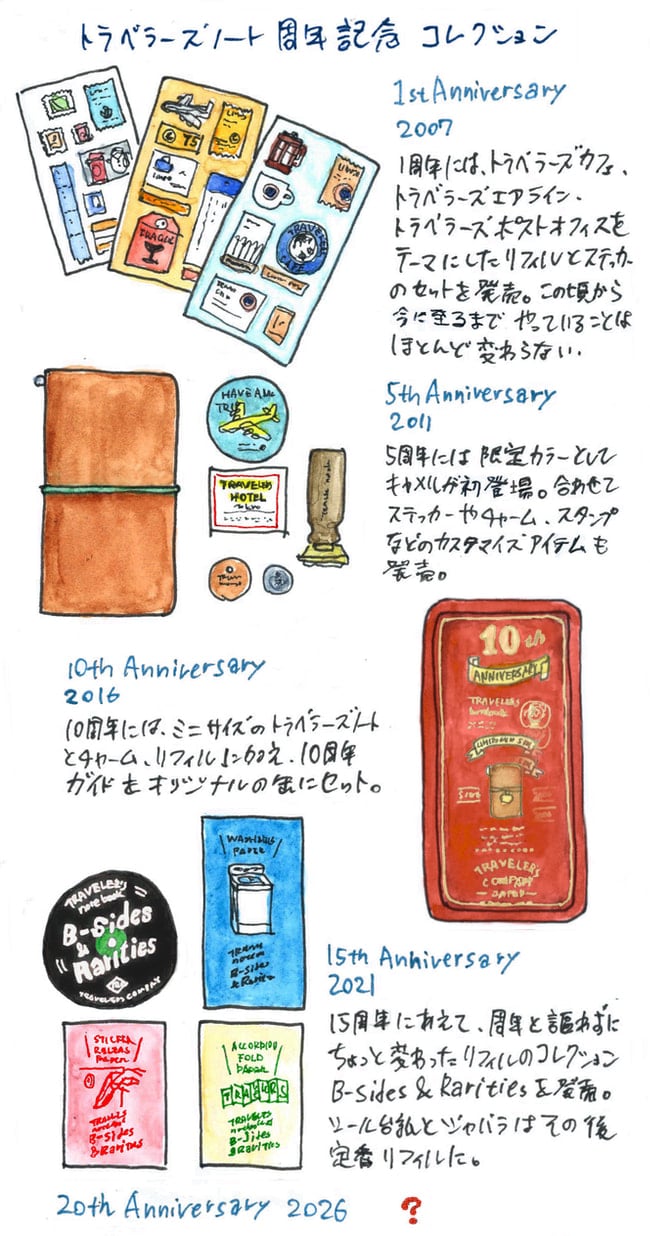 トラベラーズノート 周年記念 コレクション
1st Anniversary
2007
1周年には、トラベラーズカフェ、
トラベラーズエアライン、
トラベラーズポストオフィスを
テーマにしたリフィルとステッカー
のセットを発売。この頃から
今に至るまで やっていることは
ほとんど変わらない.
75
FRAGILE
TRAVELER'S
CAFE
5th Anniversary
2011
5周年には 限定カラーとして
キャメルが初登場。合わせて
ステッカーやチャーム、スタンプ
などのカスタマイズアイテムも
発売。
HAVE A
TRIP
TRAVELER'S
HOTEL
10th Anniversary
2016
10周年には、ミニサイズのトラベラーズノート
とチャーム、リフィルに加え、10周年
ガイドをオリジナルの缶にセット。
10th
ANNIVERSARY
TRAVELER'S
notebook
TRAVELER'S
COMPANY
JAPAN
TRAVELER'S
note book
B-Sides
&
Rarities
TRAVELER'S COMPANY
PAPER
B-Sides
& Rarities
STICKER
RELEAS
PAPER
B-Sides
& Rarities
ACCORDION
FOLD
PAPER
B-Sides
& Rarities
15th Anniversary
2021
15周年にあえて、周年と謳わずに
ちょっと変わったリフィルのコレクション
B-Sides & Rarities を発売。
シール台紙とジャバラはその後
定番リフィルに。
20th Anniversary 2026 ?